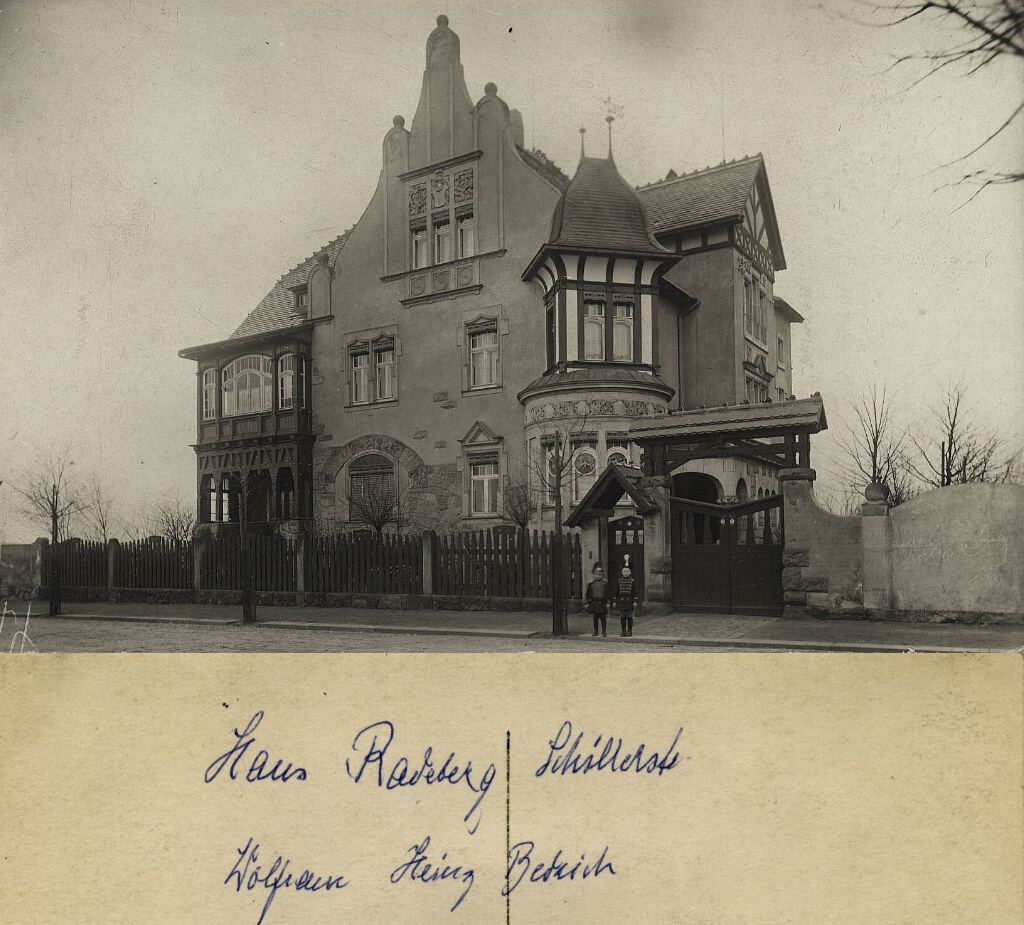 Haus Radeberg Schillerstr
Wolfram Heinz Bedrich